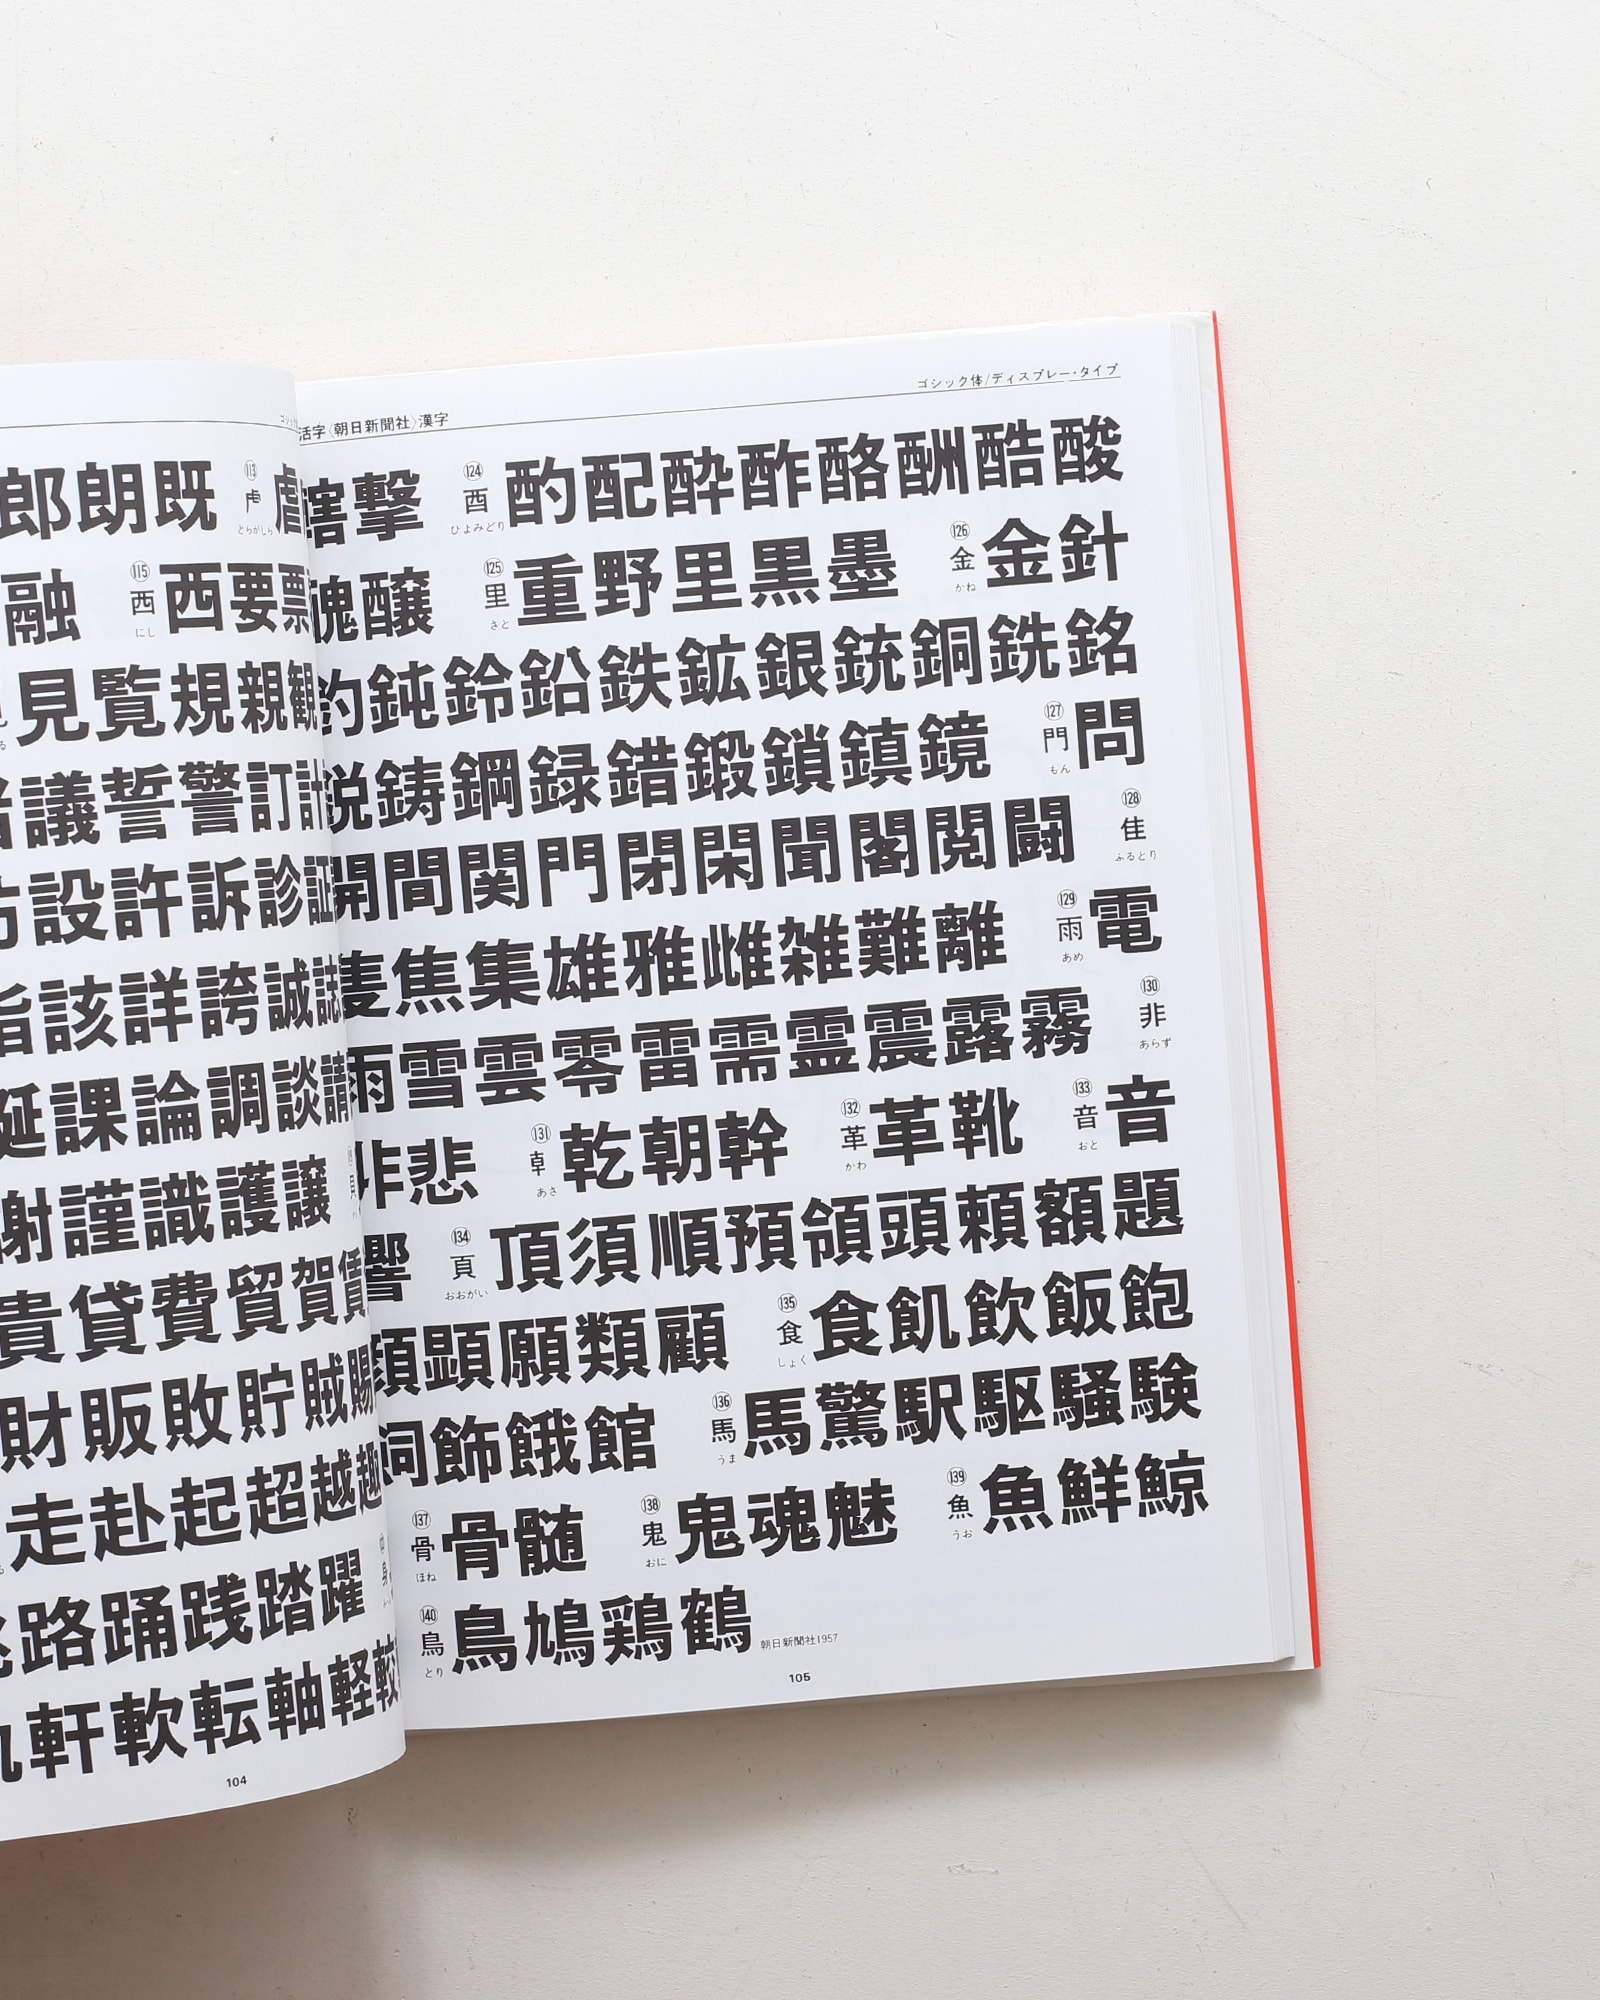 郎朗既 113 虍 とらがしら 虐
融 115 西 にし 西要票
見覧規親観
議誓警訂計
設許訴診証
該詳誇誠誌
誕課論調談請
謝謹識護譲
貴貸費貿賀賃
財販敗貯賊賜
走赴起超越趣
路踊践踏躍
軒軟転軸軽較
104
活字〈朝日新聞社〉漢字
ゴシック体/ディスプレー・タイプ
轄撃 124 酉 ひよみどり 酌配酔酢酪酬酷酸
醜醸 125 里 さと 重野里黒墨 126 金 かね 金針
釣鈍鈴鉛鉄鉱銀銃銅銑銘
鋭鋳鋼録錯鍛鎖鎮鏡 127 門 もん 問
開間関門閉閑聞閣閲闘 128 隹 ふるとり
焦集雄雅雌雑難離 129 雨 あめ 電
雨雪雲零雷需霊震露霧 130 非 あらず
非悲 131 卓 あさ 乾朝幹 132 革 かわ 革靴 133 音 おと 音
響 134 頁 おおがい 頂須順預領頭頼額題
顔顕願類顧 135 食 しょく 食飢飲飯飽
飼飾餓館 136 馬 うま 馬驚駅駆騒験
137 骨 ほね 骨髄 138 鬼 おに 鬼魂魅 139 魚 うお 魚鮮鯨
140 鳥 とり 鳥鳩鶏鶴 朝日新聞社1957
105